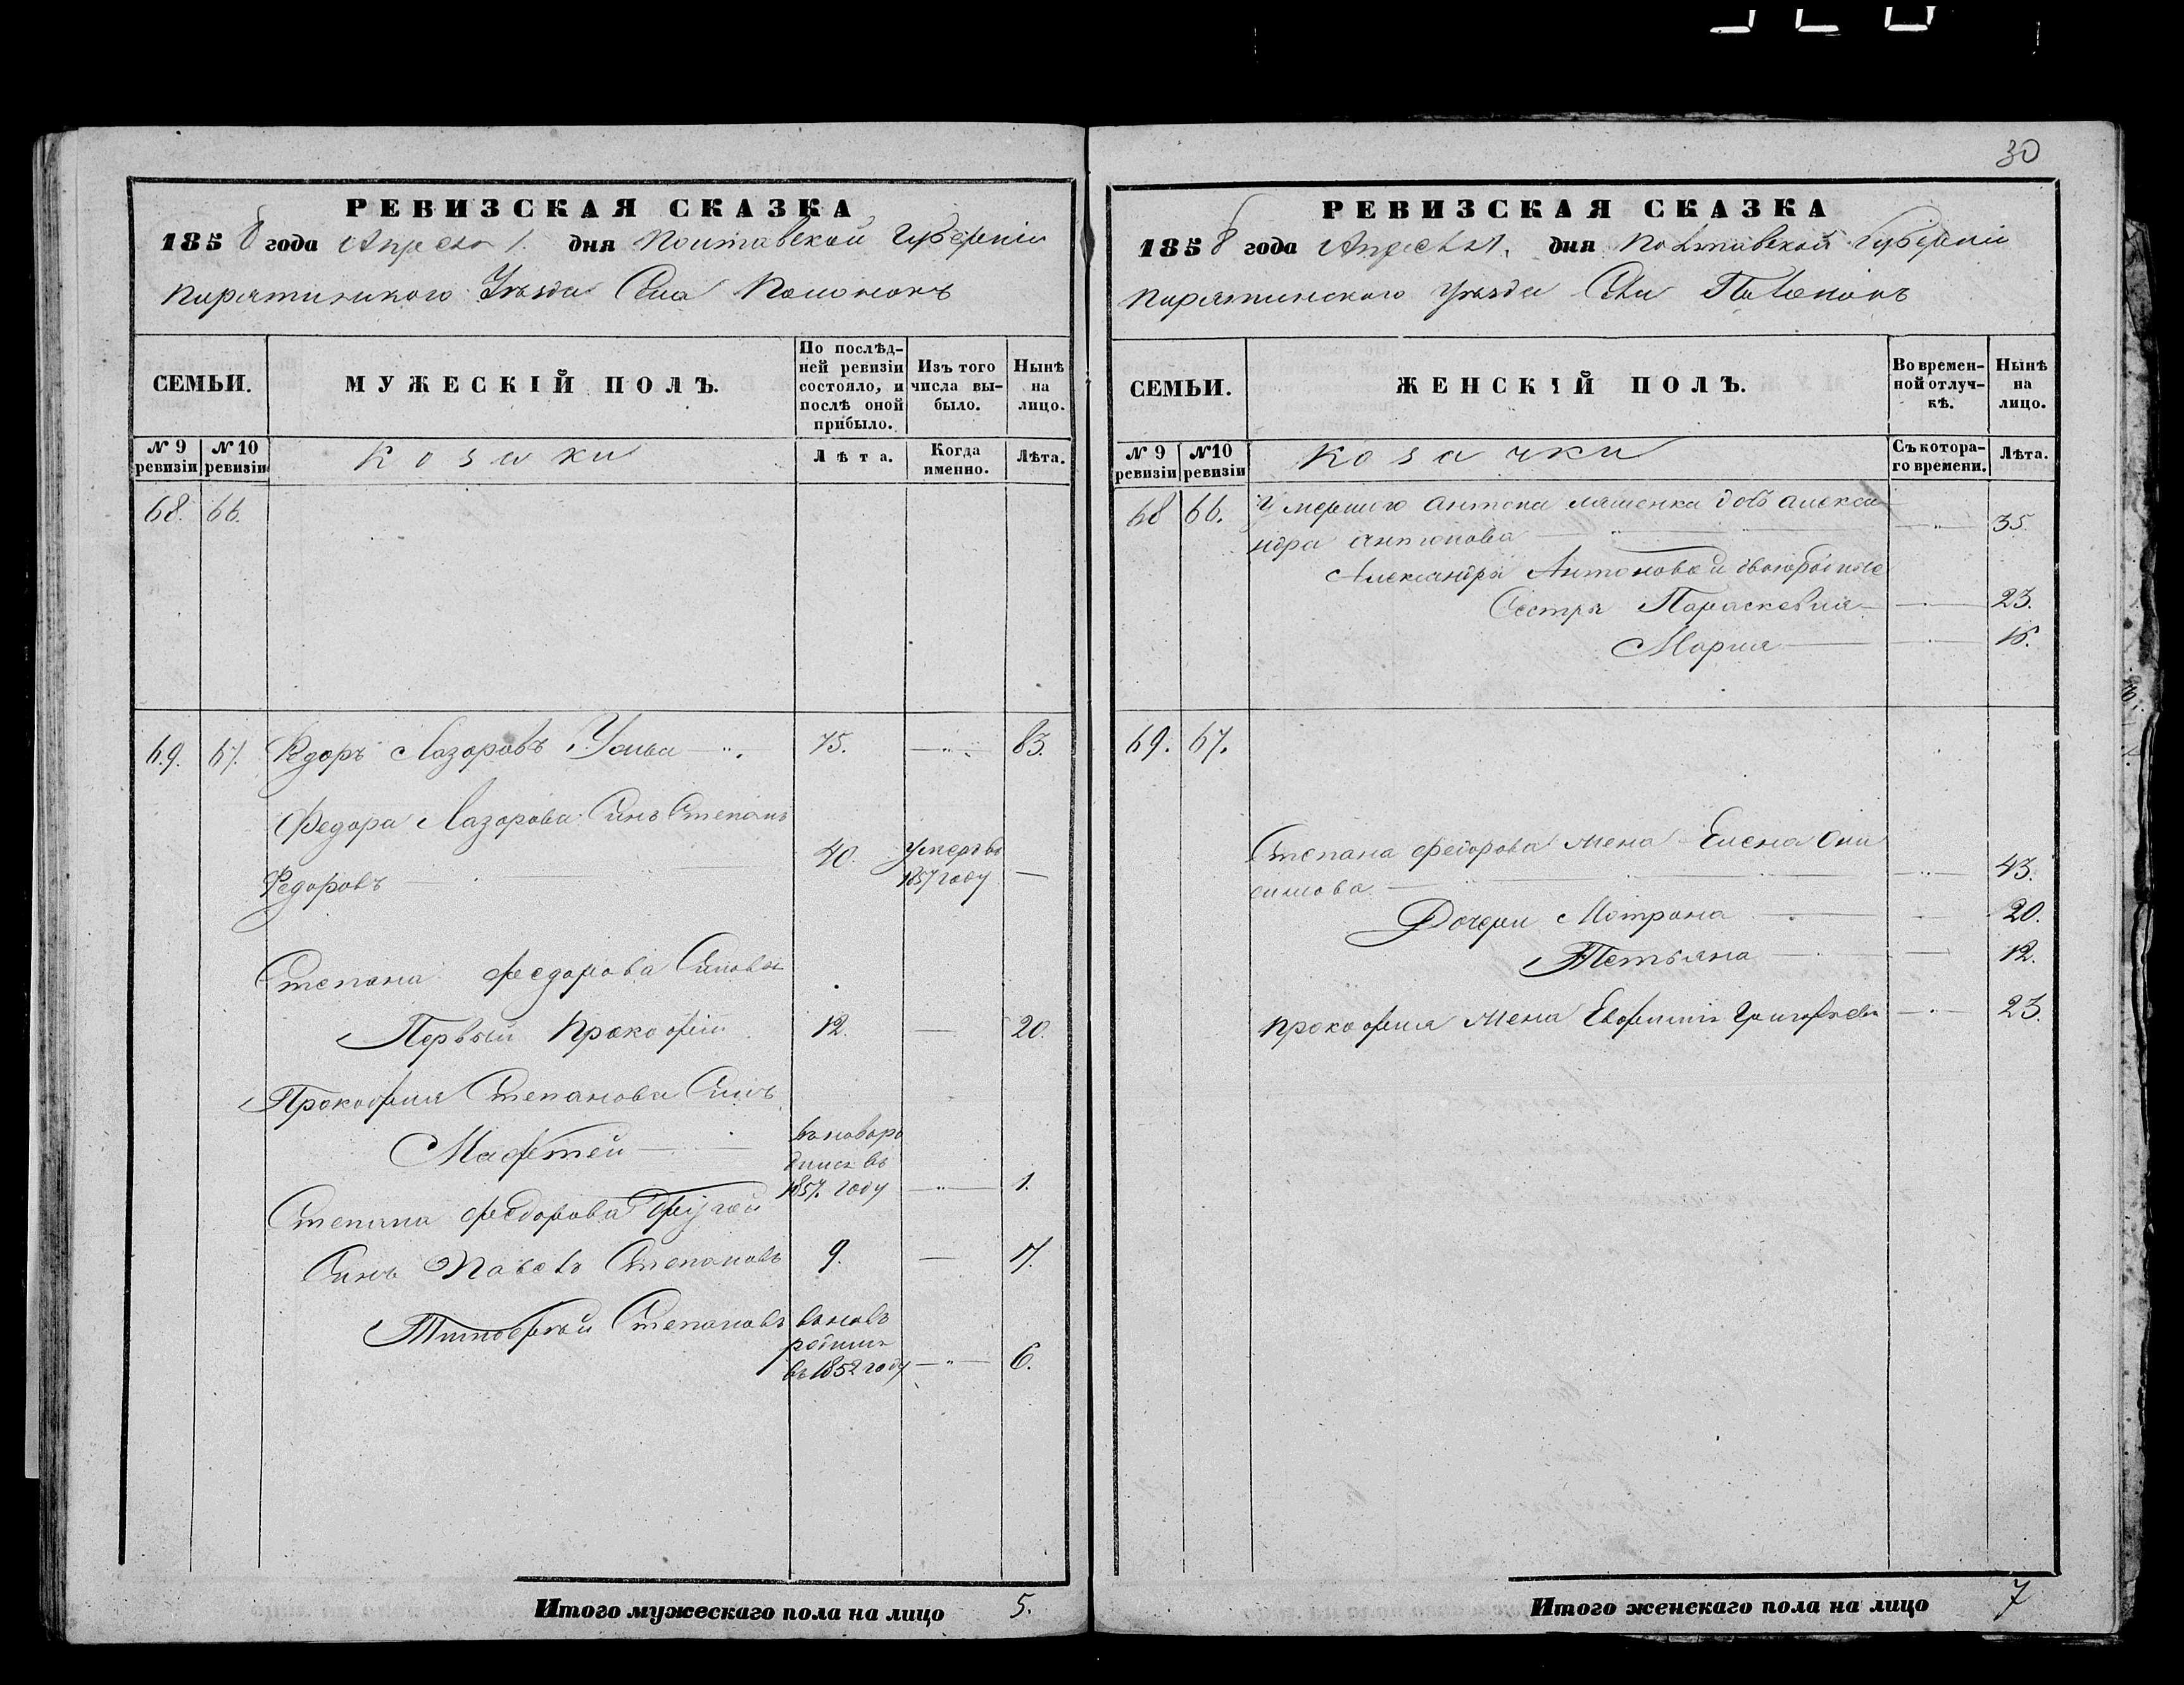 30
РЕВИЗСКАЯ СКАЗКА
1858 года Апреля 1. дня Полтавской Губерніи
Пирятинского Уезда Села Полонокъ
СЕМЬИ.
МУЖЕСКІЙ ПОЛЪ.
По послѣд-
ней ревизіи
состояло, и
послѣ оной
прибыло.
Изъ того
числа вы-
было.
Нынѣ
на
лицо.
№ 9
ревизіи
№ 10
ревизіи
Козаки
Лѣта.
Когда
именно.
Лѣта.
68. 66.
69. 67. Федоръ Лазоровъ 75. 83.
Федора Лазорова Синъ Степанъ
Федоровъ 40. умеръ въ
1857 году
Степана Федорова Синовья
Первый Прокофій 12. 20.
Прокофия Степанова Синъ
Мафтей
1857. году 1.
Степана Федорова другой
Синъ Павелъ Степановъ 9. 17.
Тимофтей Степановъ вновь
родился
въ 1852 году 6.
Итого мужескаго пола на лицо 5.
РЕВИЗСКАЯ СКАЗКА
1858 года Апреля 1. дня Полтавской Губерніи
Пирятинского уезда Села Полонокъ
СЕМЬИ.
ЖЕНСКІЙ ПОЛЪ.
Во времен-
ной отлуч-
кѣ.
Нынѣ
на
лицо.
№ 9
ревизіи
№10
ревизіи
Козачки
Съ котора-
го времени.
Лѣта.
68 66. Умершого Антона Ляшенка дочь Алекса
ндра Антонова 35.
Александры Антоновой двоюродные
Сестры Параскевия 23.
Мария 16.
69. 67.
Степана Федорова жена Елена Они
симова 43.
Дочери Мотрона 20.
Тетьяна 12.
Прокофия жена Евфимия Григорьева 23.
Итого женскаго пола на лицо 7